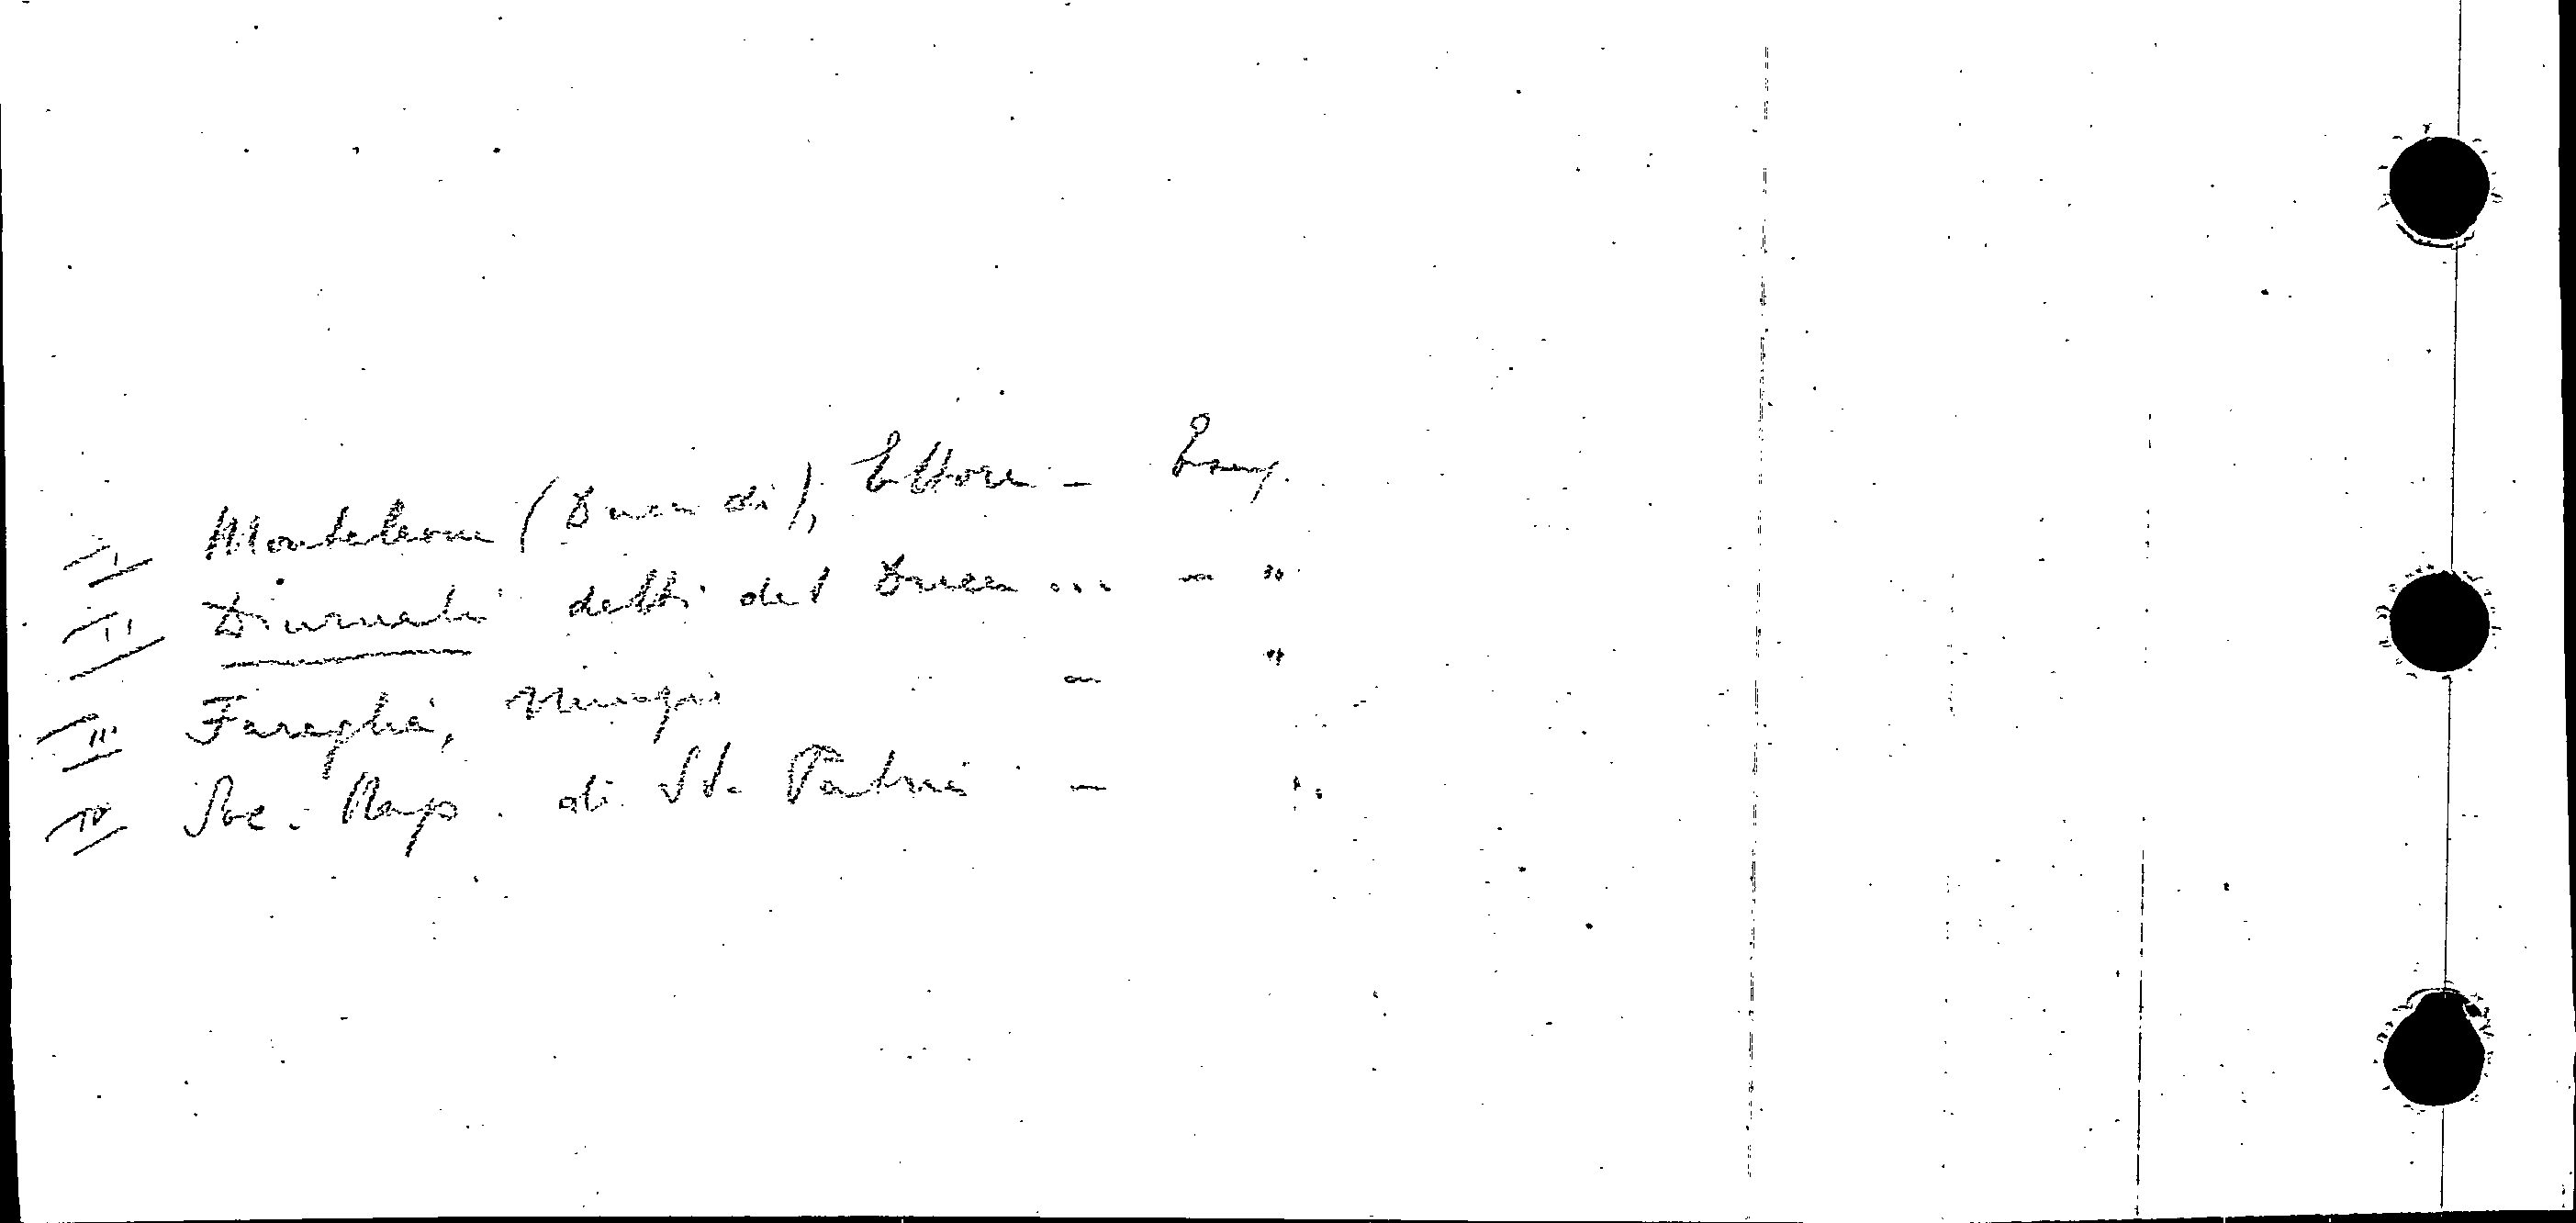 I Monteleone (Duca di), Ettore -
II Diurnali detti del Duca ... - "
III Faraglia, Nunzio - "
IV Soc. Nap. di St. Patria - "